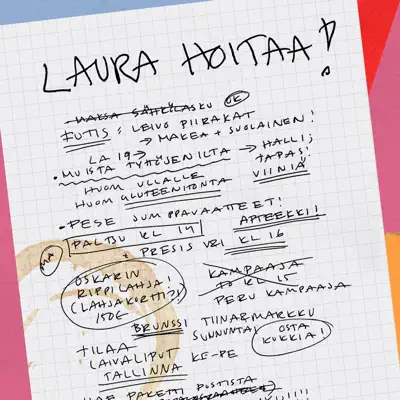 LAURA HOITAA!
MAKSA SÄHKÖLASKU OK
FUTIS: LEIVO PIIRAKAT
→ MAKEA + SUOLAINEN!
LA 19→
• MUISTA TYTTÖJENILTA → HALLI;
TAPAS!
HUOM ULLALLE VIINIÄ!
HUOM GLUTEENITONTA
• PESE JUMPPAVAATTEET!
APTEEKKI!
PALTSU KL 14
MA + PRESIS VRI KL 16
OSKARIN
RIPPILAHJA!
(LAHJAKORTTI?)
150€
KAMPAAJA
TO KL 15
PERU KAMPAAJA
BRUNSSI TIINAMARKKU
SUNNUNTAI
OSTA
KUKKIA!
TILAA
LAIVALIPUT KE-PE
TALLINNA
HAE PAKETTI POSTISTA